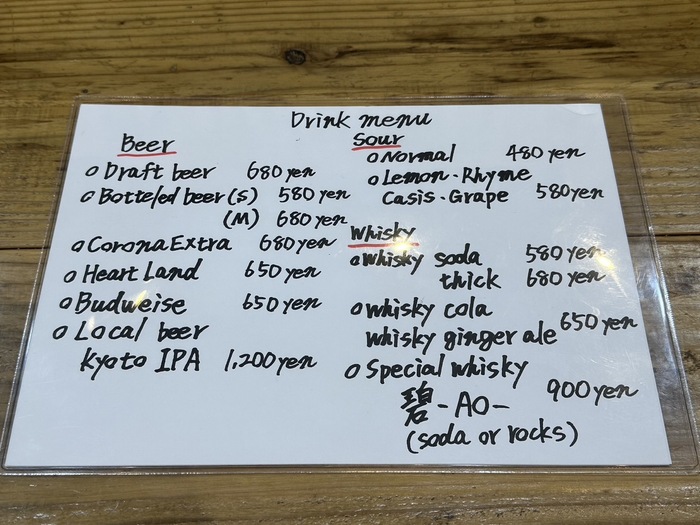 Drink menu
Beer
Draft beer 680 yen
Botteled beer (S) 580 yen
(M) 680 yen
Corona Extra 680 yen
Heart Land 650 yen
Budweise 650 yen
Local beer
Kyoto IPA 1,200 yen
Sour
Normal 480 yen
Lemon・Rhyme
Casis・Grape 580 yen
Whisky
whisky soda 580 yen
thick 680 yen
whisky cola
whisky ginger ale 650 yen
Special whisky
碧 -AO- 900 yen
(soda or rocks)